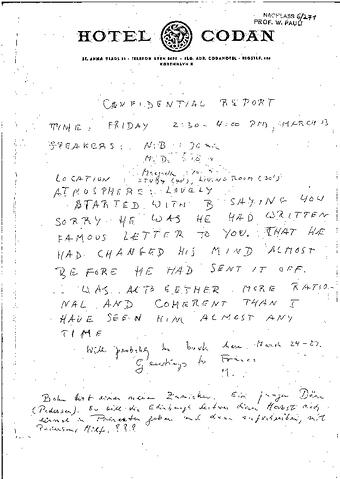 NACHLASS 6/271
PROF. W. PAULI
HOTEL CODAN
ST. ANNÆ PLADS 21 - TELEFON
KØBENHAVN K
CONFIDENTIAL REPORT
TIME: FRIDAY 2:30-4:00 PM, MARCH 13
SPEAKERS: N.B.
M.D.
LOCATION: STUDY LIVING ROOM
ATMOSPHERE: LOVELY
STARTED WITH B SAYING HOW
SORRY HE WAS HE HAD WRITTEN
FAMOUS LETTER TO YOU. THAT HE
HAD CHANGED HIS MIND ALMOST
BEFORE HE HAD SENT IT OFF.
WAS ALTOGETHER MORE RATIO-
NAL AND COHERENT THAN I
HAVE SEEN HIM ALMOST ANY
TIME
Will probably be back here March 24-27.
Greetings to Franca
M.
Bohr hat einen neuen Ein junger Däne
(Pedersen). Er will die Edinburgh diesen Herbst
in Princeton geben und dann aufschreiben, mit
Pedersens Hilfe. ???